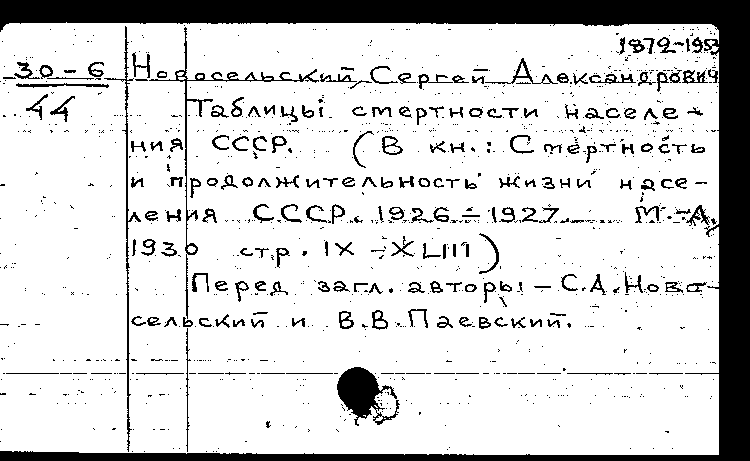 1872-1953
30-6 Новосельский, Сергей Александрович
44 Таблицы смертности населе-
ния СССР. (В кн.: Смертность
и продолжительность жизни насе-
ления СССР. 1926-1927. М.-Л.
1930 стр. IX-XLIII)
Перед загл. авторы - С.А.Ново-
сельский и В.В.Паевский.